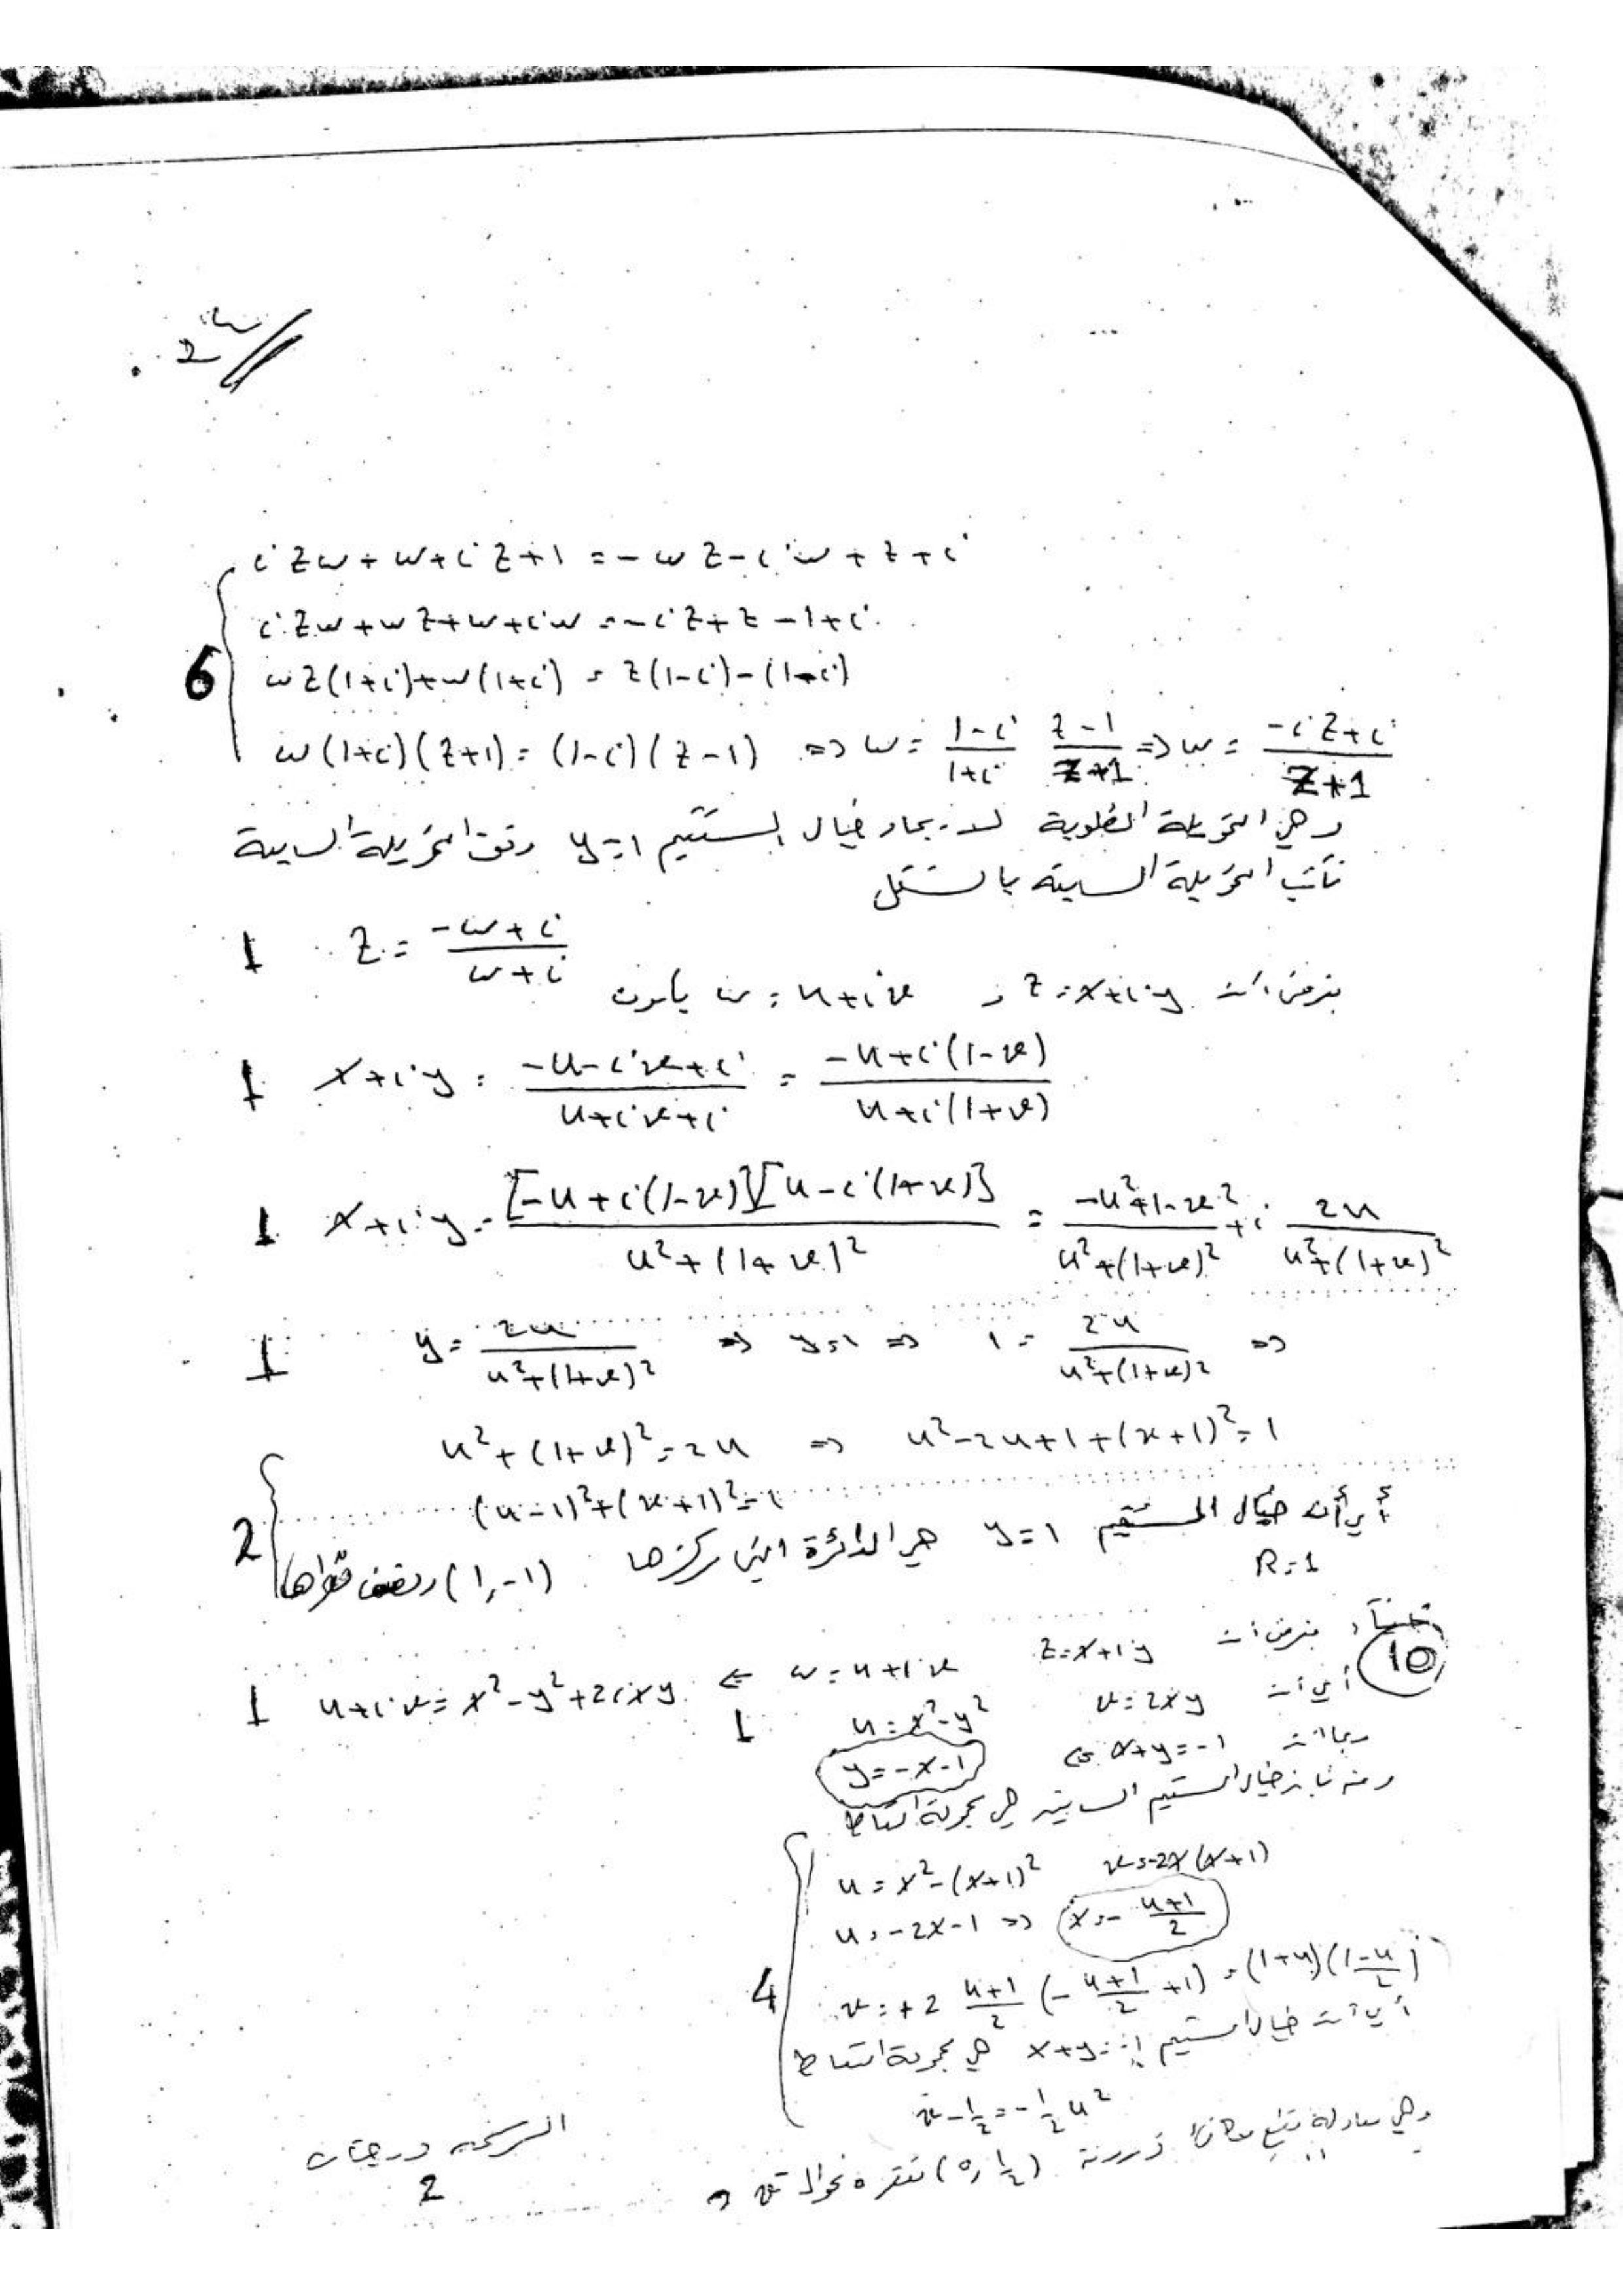 6
i z w + w + i z + 1 = - w z - i w + z + i
i z w + w z + w + i w = - i z + z - 1 + i
w z (1+i) + w (1+i) = z (1-i) - (1-i)
w (1+i) (z+1) = (1-i) (z-1) ⇒ w = \frac{1-i}{1+i} \frac{z-1}{z+1} ⇒ w = \frac{-i z + i}{z+1}
وهي التحويلة المطلوبة لإيجاد خيال المستقيم y=1 وفق التحويلة السابقة
نكتب التحويلة السابقة بالشكل
1 z = \frac{-w+i}{w+i}
بفرض أن z = x+iy و w = u+iv يكون
1 x+iy = \frac{-u-iv+i}{u+iv+i} = \frac{-u+i(1-v)}{u+i(1+v)}
1 x+iy = \frac{[-u+i(1-v)][u-i(1+v)]}{u²+(1+v)²} = \frac{-u²+1-v²}{u²+(1+v)²} + i \frac{2u}{u²+(1+v)²}
1 y = \frac{2u}{u²+(1+v)²} ⇒ y=1 ⇒ 1 = \frac{2u}{u²+(1+v)²} ⇒
u²+(1+v)² = 2u ⇒ u²-2u+1+(v+1)² = 1
2 (u-1)²+(v+1)² = 1
أي أن خيال المستقيم y=1 هي الدائرة التي مركزها (1,-1) ونصف قطرها
R=1
10
ثانياً، بفرض أن z=x+iy w=u+iv ⇐
1 u+iv = x²-y²+2ixy
أي أن v=2xy u=x²-y² 1
وبما أن x+y=-1 ⇒ y=-x-1
ومنه فإن خيال المستقيم السابق هي مجموعة النقاط
4 u = x²-(x+1)² v=-2x(x+1)
u=-2x-1 ⇒ x=-\frac{u+1}{2}
v = +2 \frac{u+1}{2} (-\frac{u+1}{2}+1) = (1+u)(\frac{1-u}{2})
أي أن خيال المستقيم x+y=-1 هي مجموعة النقاط
v-\frac{1}{2} = -\frac{1}{2}u²
وهي معادلة قطع مكافئ ذروته (0,\frac{1}{2}) تقعره نحو الـ
2